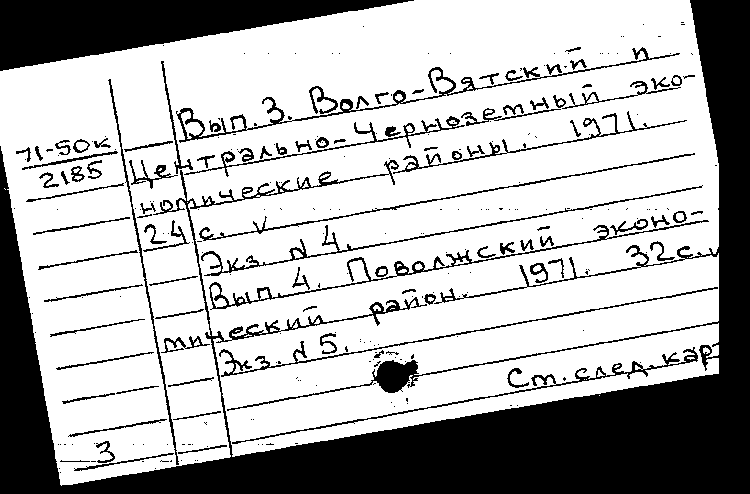 Вып. 3. Волго-Вятский и
71-50к
2185
Центрально-Черноземный эко-
номические районы. 1971.
24 с. v
Экз. N 4.
Вып. 4. Поволжский эконо-
мический район. 1971. 32 с. v
Экз. N 5.
См. след. кар
3